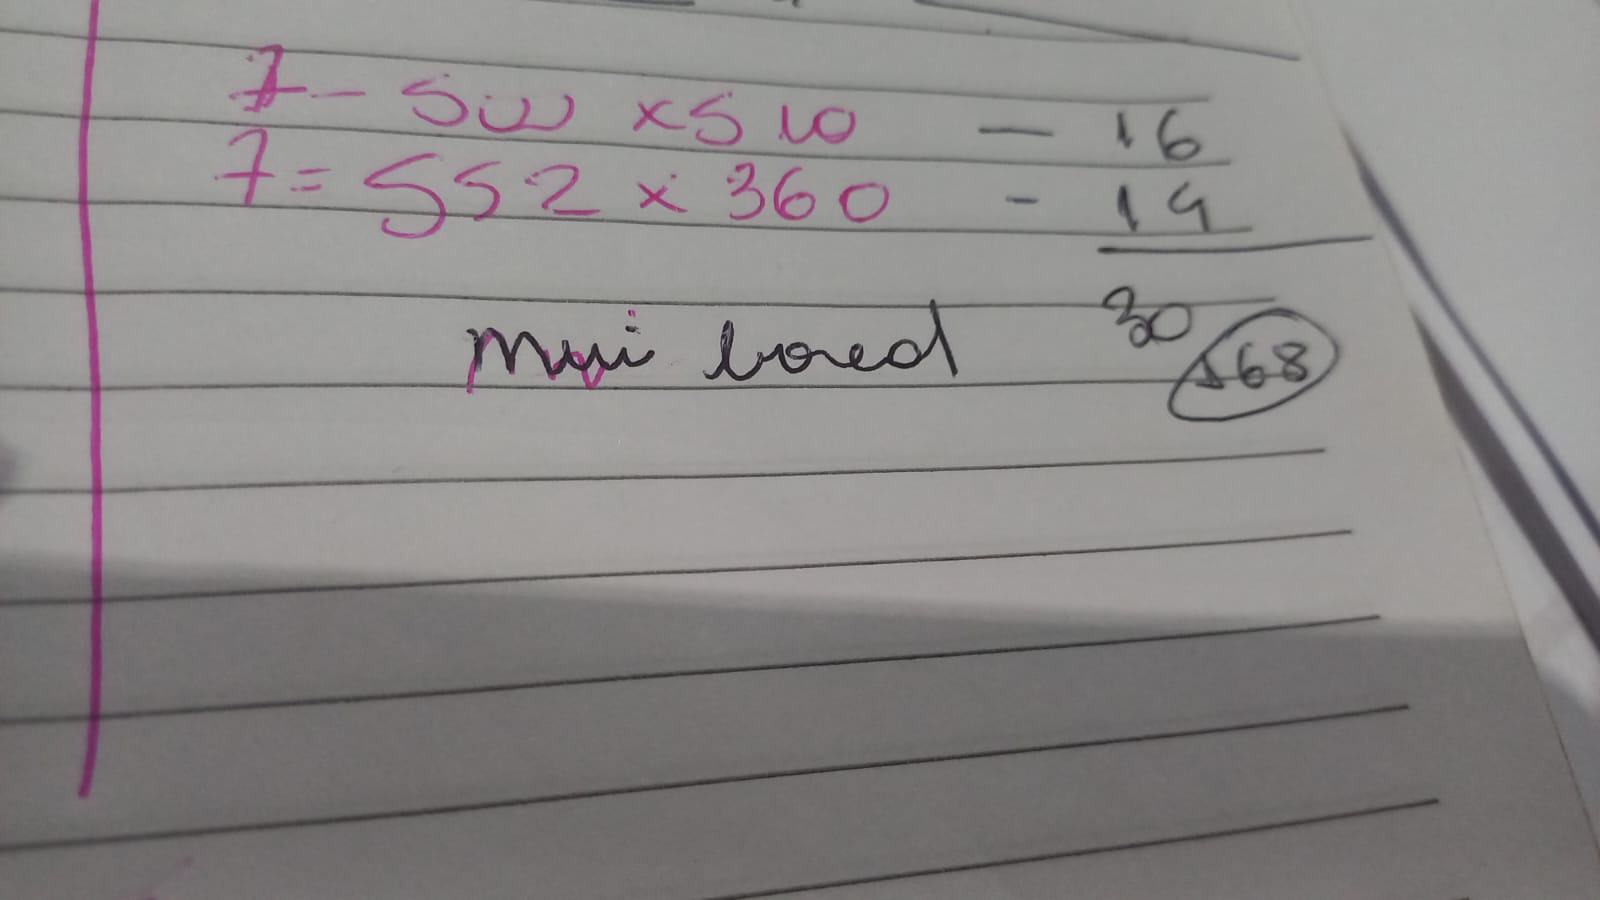 7 - 500 x 510 - 16
7 = 552 x 360 - 14
30
Mini bored
168